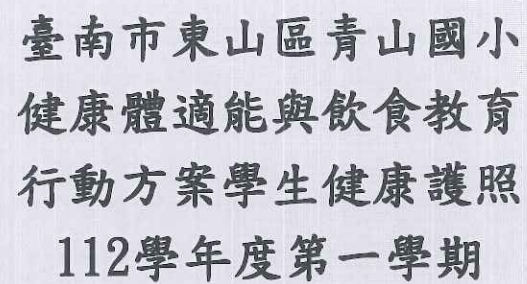 臺南市東山區青山國小
健康體適能與飲食教育
行動方案學生健康護照
112學年度第一學期